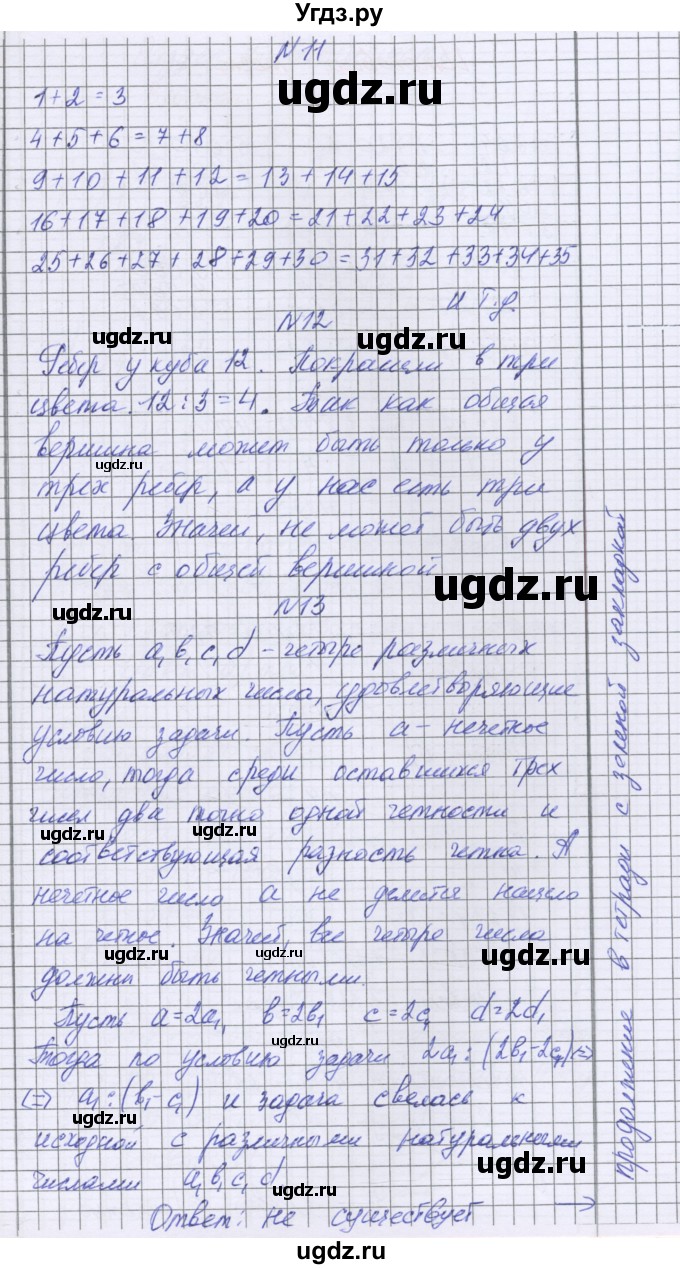 Угдз.ру
N 11
ugdz.ru
1+2=3
4+5+6=7+8
9+10+11+12=13+14+15
16+17+18+19+20=21+22+23+24
25+26+27+28+29+30=31+32+33+34+35
и т.д.
N12
ugdz.ru
ugdz.ru
Ребер у куба 12. Покрашен в три
цвета. 12:3=4. Так как общая
вершина может быть только у
ugdz.ru
трех ребер, а у нас есть три
цвета. Значит, не может быть двух
ребер с общей вершиной
ugdz.ru
ugdz.ru
N13
Пусть a, b, c, d – четыре различных
натуральных числа, удовлетворяющие
условию задачи. Пусть a – нечетное
число, тогда среди оставшихся трех
чисел два точно одной четности и
ugdz.ru
ugdz.ru
соответствующая разность четна. А
нечетное число a не делится нацело
на четное. Значит, все четыре числа
ugdz.ru
должны быть четными.
Пусть a=2a₁, b=2b₁ c=2c₁ d=2d₁
Тогда по условию задачи 2a₁:(2b₁-2c₁)⇔
ugdz.ru
⇔ a₁:(b₁-c₁) и задача свелась к
исходной с различными натуральными
ugdz.ru
числами a, b, c, d
ugdz.ru
Ответ: не существует →
ugdz.ru
продолжение в тетради с зеленой закладкой